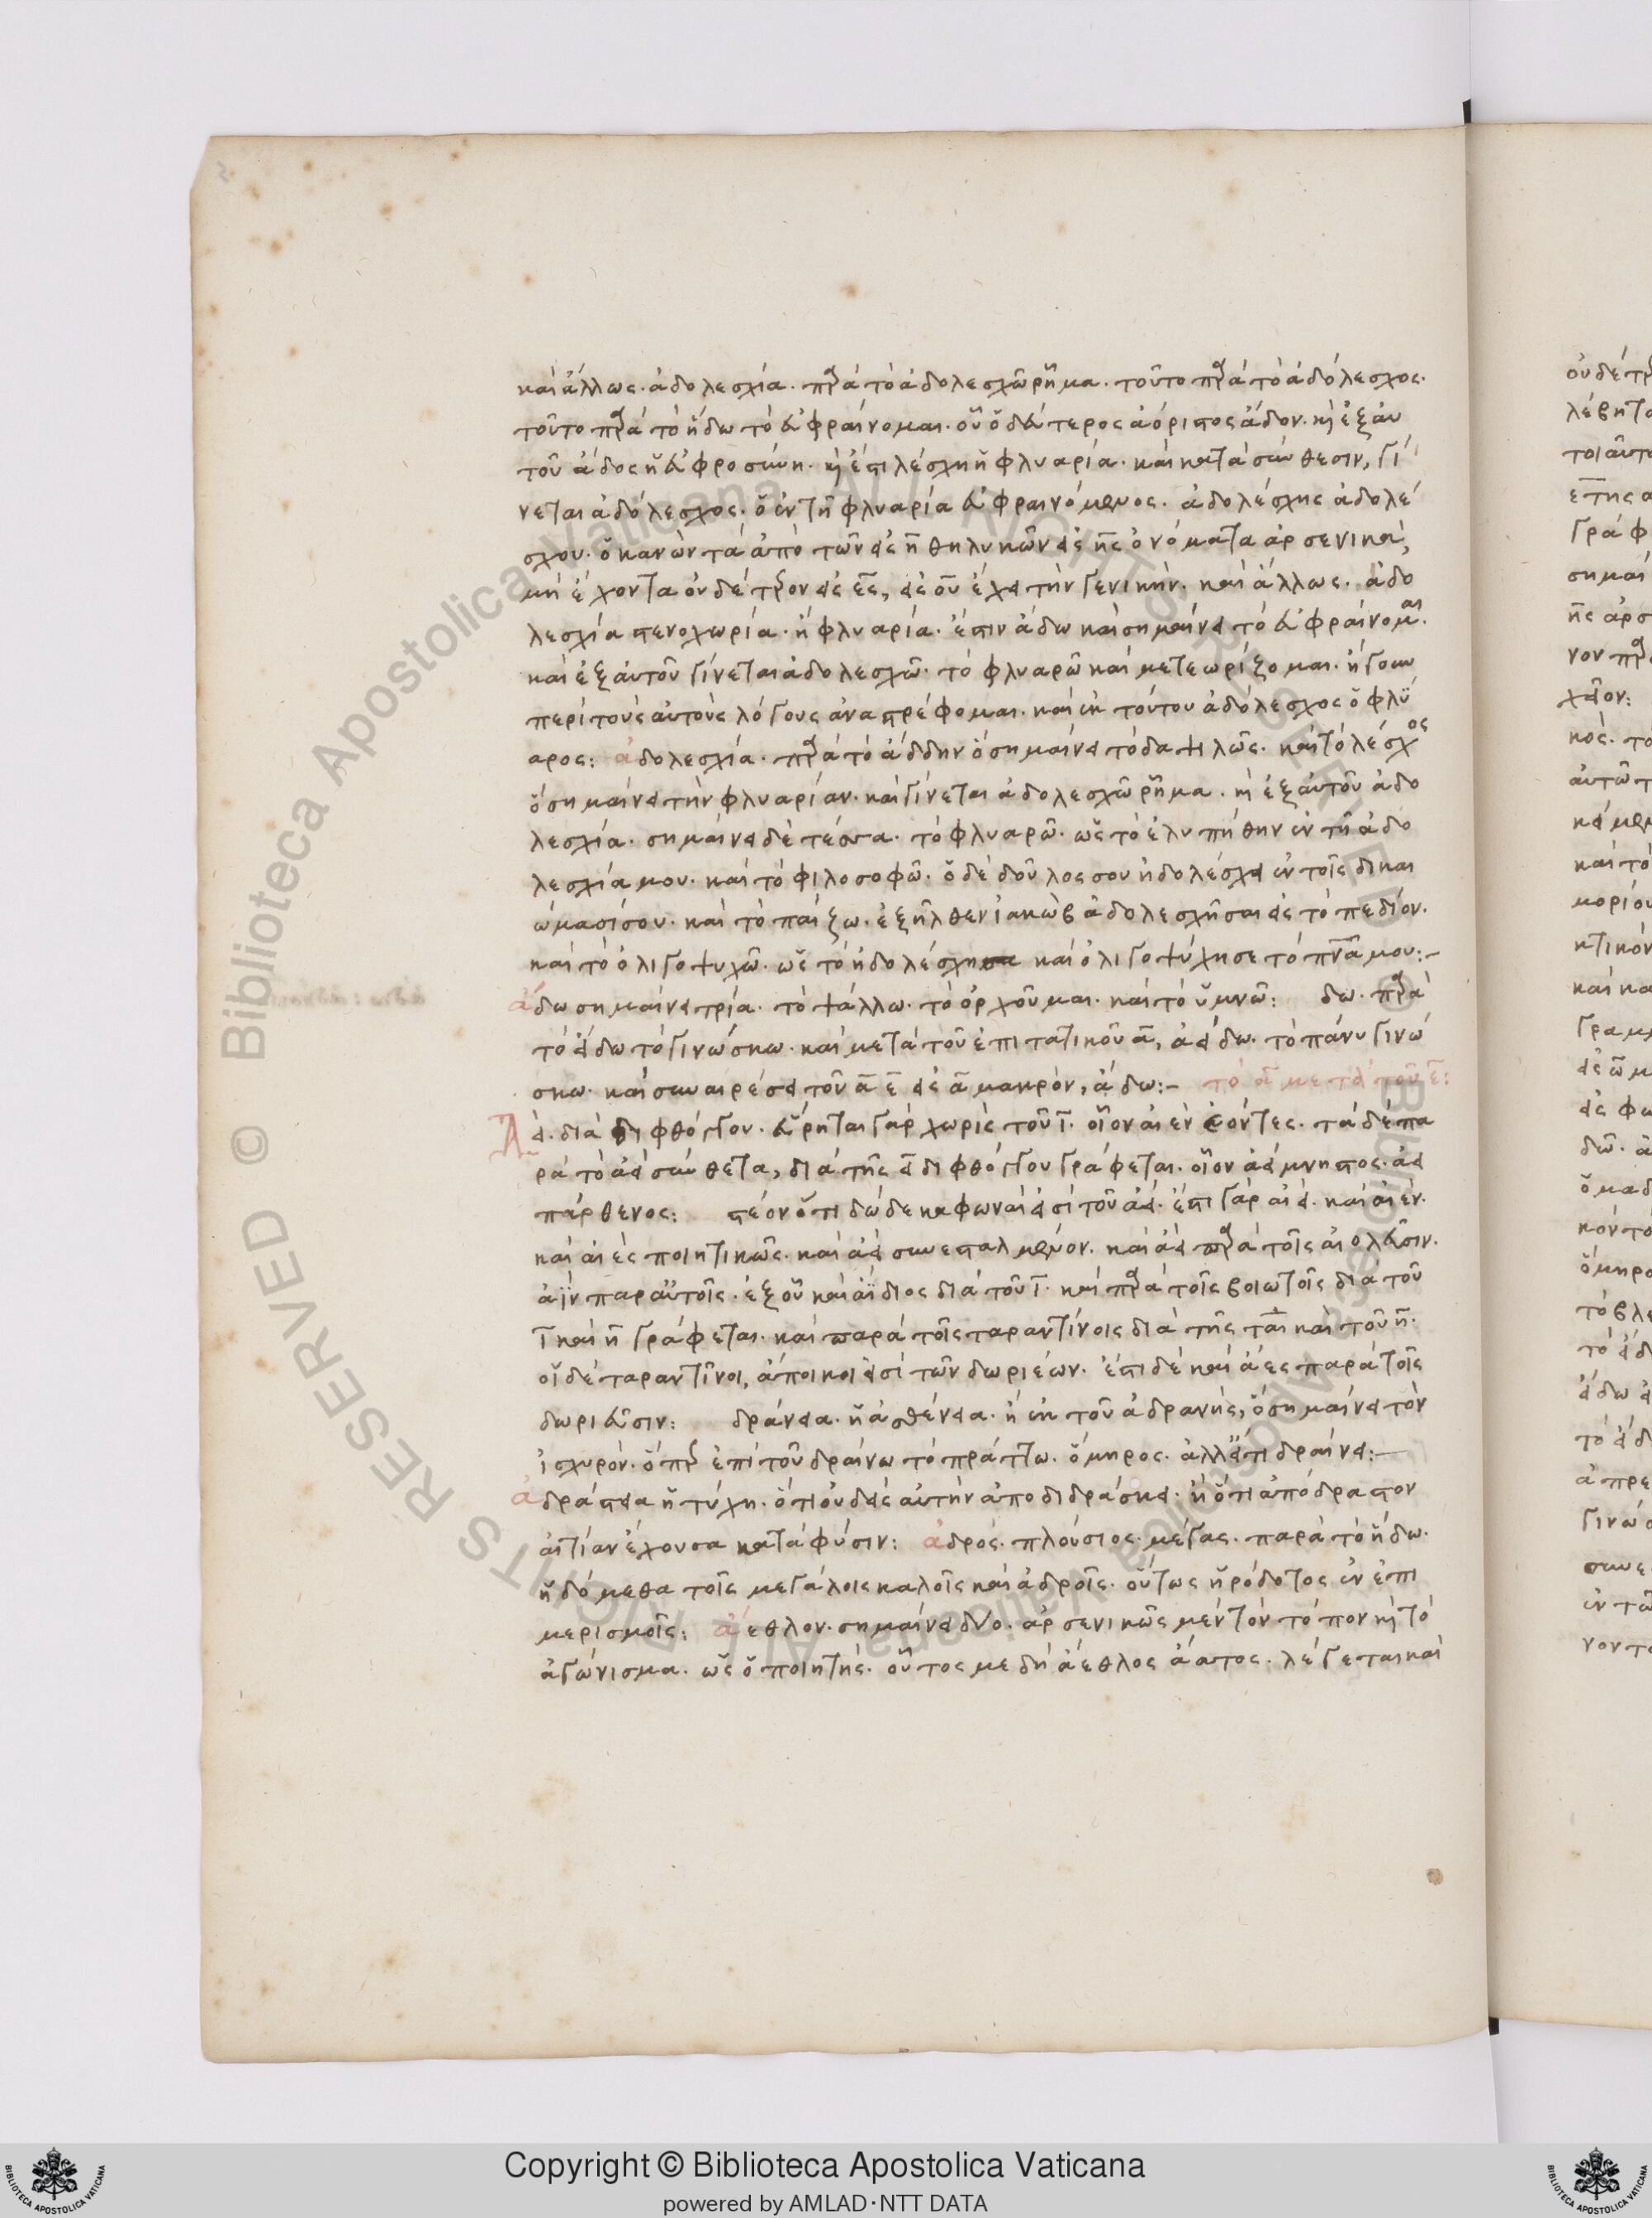 καὶ ἄλλως. ἀδολεσχία. παρὰ τὸ ἀδολεσχῶ ῥῆμα. τοῦτο παρὰ τὸ ἀδόλεσχος.
τοῦτο παρὰ τὸ ἥδω τὸ εὐφραίνομαι. οὗ ὁ δεύτερος ἀόριστος ἅδον. καὶ ἐξ αὐ
τοῦ ἄδος ἡ εὐφροσύνη. καὶ ἔστι λέσχη ἡ φλυαρία. καὶ κατὰ σύνθεσιν, γί
νεται ἀδόλεσχος. ὁ ἐν τῇ φλυαρία εὐφραινόμενος. ἀδολέσχης ἀδολέ
σχου. ὁ κανὼν τὰ ἀπὸ τῶν εἰς η̅ θηλυκῶν εἰς ης ὀνόματα ἀρσενικὰ,
μὴ ἔχοντα οὐδέτερον εἰς ες, εἰς ου ἔχει τὴν γενικήν. καὶ ἄλλως. ἀδο
λεσχία στενοχωρία. ἢ φλυαρία. ἔστιν ἄδω καὶ σημαίνει τὸ εὐφραίνομαι.
καὶ ἐξ αὐτοῦ γίνεται ἀδολεσχῶ. τὸ φλυαρῶ καὶ μετεωρίζομαι. ἤγουν
περὶ τοὺς αὐτοὺς λόγους ἀναστρέφομαι. καὶ ἐκ τούτου ἀδόλεσχος ὁ φλύ
αρος: ἀδολεσχία. παρὰ τὸ ἄδδην ὃ σημαίνει τὸ δαψιλῶς. καὶ τὸ λέσχος
ὃ σημαίνει τὴν φλυαρίαν. καὶ γίνεται ἀδολεσχῶ ῥῆμα. καὶ ἐξ αὐτοῦ ἀδο
λεσχία. σημαίνει δὲ τέσσαρα. τὸ φλυαρῶ. ὡς τὸ ἐλυπήθην ἐν τῇ ἀδο
λεσχία μου. καὶ τὸ φιλοσοφῶ. ὁ δὲ δοῦλος σου ἠδολέσχει ἐν τοῖς δικαι
ώμασί σου. καὶ τὸ παίζω. ἐξῆλθεν ἰακὼβ ἀδολεσχῆσαι εἰς τὸ πεδίον.
καὶ τὸ ὀλιγοψυχῶ. ὡς τὸ ἠδολέσχησα καὶ ὀλιγοψύχησε τὸ πνᾶ μου:-
ἄδω σημαίνει τρία. τὸ ψάλλω. τὸ ὀρχοῦμαι. καὶ τὸ ὑμνῶ: δω. παρὰ
τὸ εἴδω τὸ γινώσκω. καὶ μετὰ τοῦ ἐπιτατικοῦ α̅, ἀείδω. τὸ πάνυ γινώ
σκω. καὶ συναιρέσει τοῦ α̅ ε̅ εἰς α̅ μακρὸν, ἄδω:- τὸ α̅ μετὰ τοῦ ε̅:
Ἀεί. διὰ διφθόγγου. εὕρηται γὰρ χωρὶς τοῦ ι̅. οἷον αἰὲν ἐόντες. τὰ δὲ πα
ρὰ τὸ ἀεὶ σύνθετα, διὰ τῆς ει διφθόγγου γράφεται. οἷον ἀείμνηστος. ἀει
πάρθενος: στέον ὅτι δώδεκα φωναὶ εἰσὶ τοῦ ἀεί. ἔστι γὰρ αἰεί. καὶ αἰέν.
καὶ αἰὲς ποιητικῶς. καὶ ἀεὶ συνεσταλμένον. καὶ ἀεὶ παρὰ τοῖς αἰολεῦσιν.
ἀῒν παρ αὐτοῖς. ἐξ οὗ καὶ ἀΐδιος διὰ τοῦ ι̅. καὶ παρὰ τοῖς βοιωτοῖς διὰ τοῦ
ι̅ καὶ η̅ γράφεται. καὶ παρὰ τοῖς ταραντίνοις διὰ τῆς ται καὶ τοῦ η̅.
οἱ δὲ ταραντῖνοι, ἄποικοι εἰσὶ τῶν δωριέων. ἔστι δὲ καὶ ἄες παρὰ τοῖς
δωριεῦσιν: δράνεια. ἡ ἀσθένεια. ἢ ἐκ τοῦ ἀδρανής, ὃ σημαίνει τὸν
ἰσχυρόν. ὅπερ ἐπὶ τοῦ δραίνω τὸ πράττω. ὅμηρος. ἀλλ' ἔτι δραίνει:-
ἀδράστεια ἡ τύχη. ὅτι οὐδεὶς αὐτὴν ἀποδιδράσκει. ἢ ὅτι ἀπόδραστον
αἰτίαν ἔχουσα κατὰ φύσιν: ἁδρός. πλούσιος. μέγας. παρὰ τὸ ἥδω.
ἡδόμεθα τοῖς μεγάλοις καλοῖς καὶ ἁδροῖς. οὕτως ἡρόδοτος ἐν ἐπι
μερισμοῖς: ἄεθλον. σημαίνει δύο. ἀρσενικῶς μὲν τὸν τόπον καὶ τὸ
ἀγώνισμα. ὡς ὁ ποιητής. οὗτος με δὴ ἄεθλος ἄατος. λέγεται καὶ
Copyright © Biblioteca Apostolica Vaticana
powered by AMLAD·NTT DATA